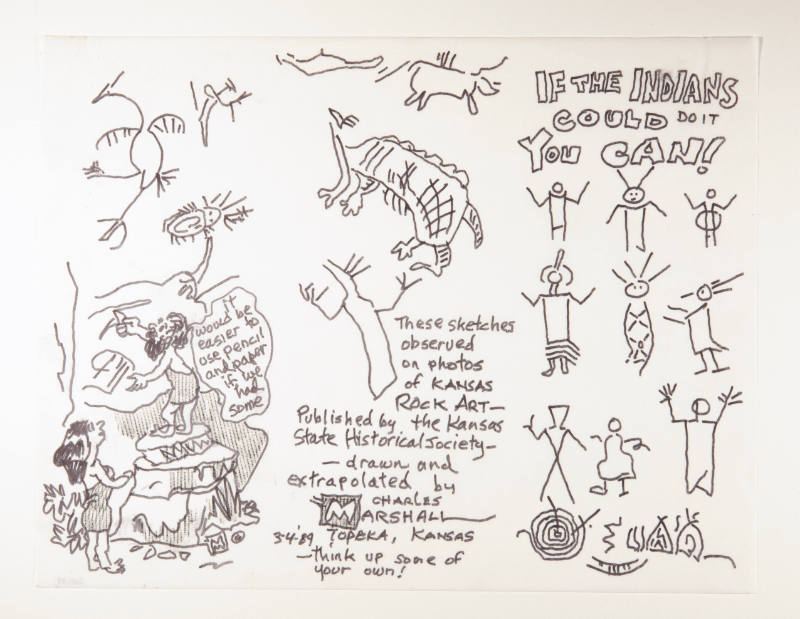 it
would be
easier to
use pencil
and paper
if we
had
some
These sketches
observed
on photos
of KANSAS
ROCK ART—
Published by the Kansas
State Historical Society—
— drawn and
extrapolated by
CHARLES
MARSHALL
3·4·'89 TOPEKA, KANSAS
—think up some of
your own!
IF THE INDIANS
COULD DO IT
YOU CAN!
M ©